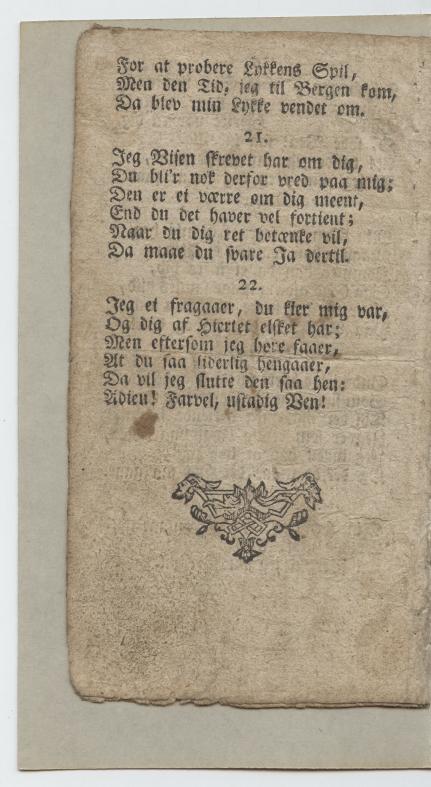 For at probere Lykkens Spil,
Men den Tid, jeg til Bergen kom,
Da blev min Lykke vendet om.
21.
Jeg Visen skrevet har om dig,
Du bli'r nok derfor vred paa mig;
Den er ei værre om dig meent,
End du det haver vel fortient;
Naar du dig ret betænke vil,
Da maae du svare Ja dertil.
22.
Jeg ei fragaaer, du kier mig var,
Og dig af Hiertet elsket har;
Men eftersom jeg høre faaer,
At du saa liderlig hengaaer,
Da vil jeg slutte den saa hen:
Adieu! Farvel, ustadig Ven!